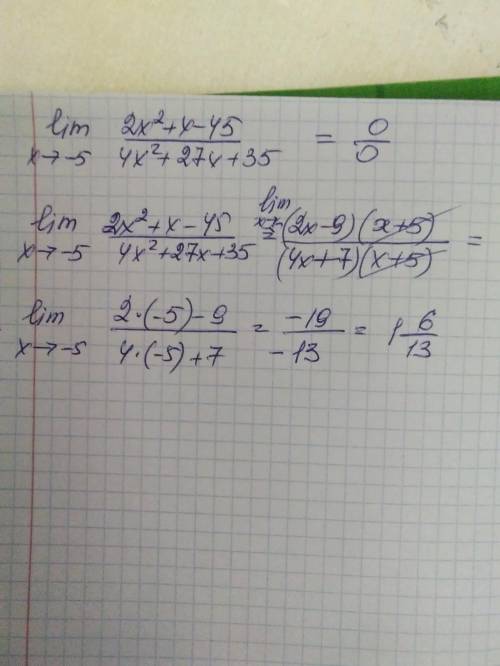 lim x→-5 (2x²+x-45)/(4x²+27x+35) = 0/0
lim x→-5 (2x²+x-45)/(4x²+27x+35) = lim x→-5 (2x-9)(x+5)/(4x+7)(x+5) =
lim x→-5 (2·(-5)-9)/(4·(-5)+7) = -19/-13 = 1 6/13